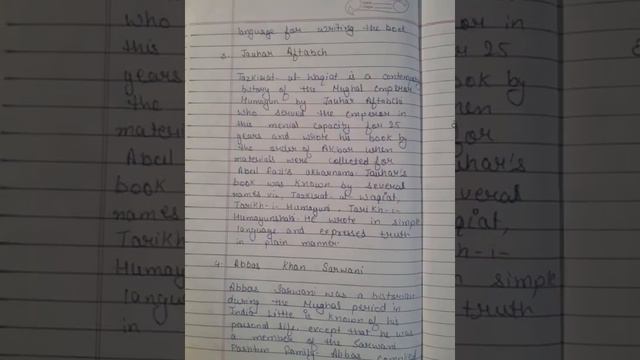 language for writing the book
3. Jauhar Aftabch
Tazkirat ul Waqiat is a contempo
history of the Mughal emperor
Humayun by Jauhar Aftabchi
who served the emperor in
this menial capacity for 25
years and wrote his book by
the order of Akbar when
materials were collected for
Abul Fazl's akbarnama. Jauhar's
book was known by several
names viz, Tazkirat ul waqiat,
Tarikh-i-Humayuni, Tarikh-i-
Humayunshahi. He wrote in simple
language and expressed truth
in plain manner.
4. Abbas Khan Sarwani
Abbas Sarwani was a historian
during the Mughal period in
India little is known of his
personal life, except that he was
a member of the Sarwani
Pashtun family. Abbas compiled